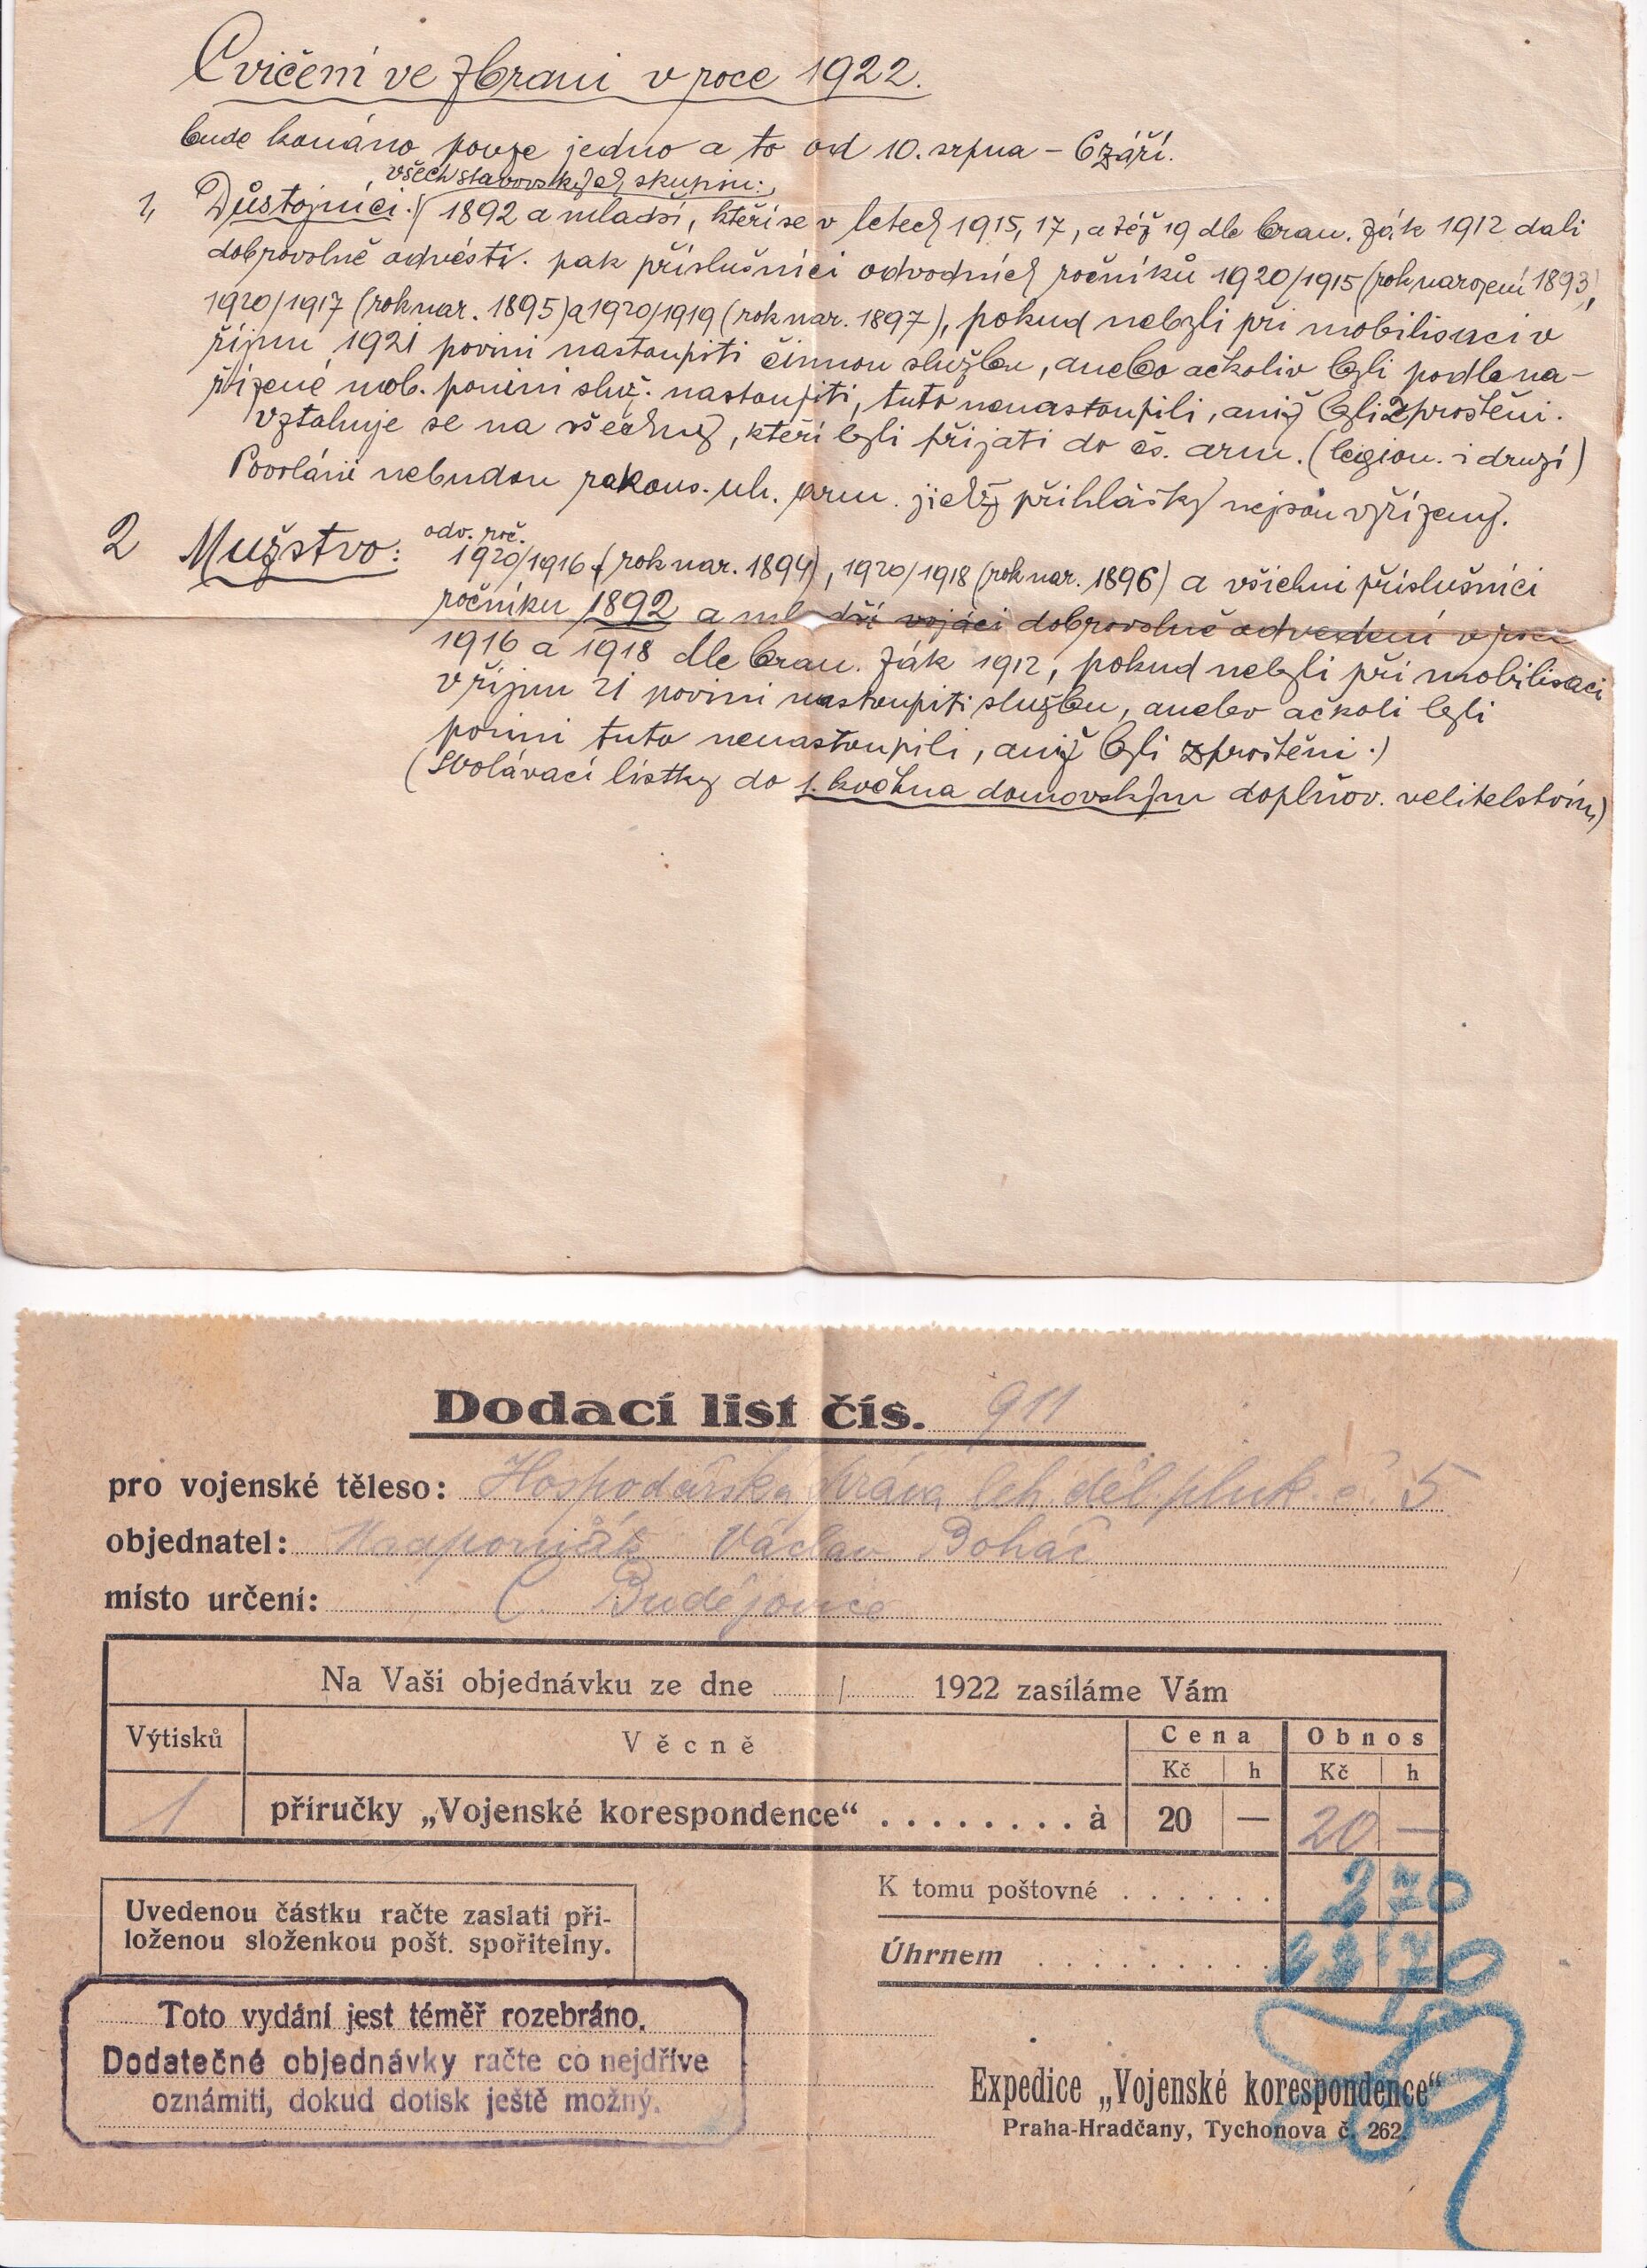 Cvičení ve zbrani v roce 1922.
bude konáno pouze jedno a to od 10. srpna – 6 září.
všech stavovských skupin:
1, Důstojníci: 1892 a mladší, kteří se v letech 1915, 17, a též 19 dle bran. zák 1912 dali
dobrovolně odvésti. pak příslušníci odvodních ročníků 1920/1915 (rok narození 1893),
1920/1917 (rok nar. 1895) a 1920/1919 (rok nar. 1897), pokud nebyli při mobilisaci v
říjnu 1921 povini nastoupiti činnou službu, anebo ačkoliv byli podle na-
řízené mob. povini služ. nastoupiti, tuto nenastoupili, aniž byli zproštěni.
Vztahuje se na všechny, kteří byli přijati do čs. arm. (legion. i druzí)
Povoláni nebudou rakous. uh. arm. jichž přihlášky nejsou vyřízeny.
2 Mužstvo: odv. roč.
1920/1916 (rok nar. 1894), 1920/1918 (rok nar. 1896) a všichni příslušníci
ročníku 1892 a ml dší vojáci dobrovolně odvedení v roce
1916 a 1918 dle bran. zák 1912, pokud nebyli při mobilisaci
v říjnu 21 povini nastoupiti službu, anebo ačkoli byli
povini tuto nenastoupili, aniž byli zproštěni.)
(Svolávací lístky do 1. května domovským doplňov. velitelstvím)
Dodací list čís. 911
pro vojenské těleso: Hospodářská správa leh. děl. pluk. č. 5
objednatel: Václav Boháč
místo určení: Č. Budějovice
Na Vaši objednávku ze dne / 1922 zasíláme Vám
Výtisků Věcně Cena Obnos
Kč h Kč h
1 příručky „Vojenské korespondence“ . . . . . . . . à 20 — 20 —
K tomu poštovné . . . . . . 2 70
Uvedenou částku račte zaslati při-
loženou složenkou pošt. spořitelny.
Úhrnem . . . . . . . . . . 70
Toto vydání jest téměř rozebráno.
Dodatečné objednávky račte co nejdříve
oznámiti, dokud dotisk ještě možný.
Expedice „Vojenské korespondence“
Praha-Hradčany, Tychonova č. 262.